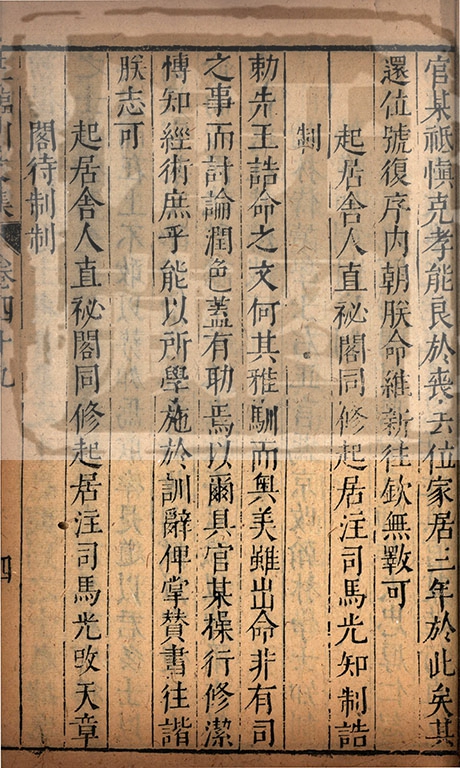 官某祗慎克孝能良於喪去位家居三年於此矣其
還位號復序内朝朕命維新往欽無斁可
起居舍人直祕閣同修起居注司馬光知制誥
制
勑先王誥命之文何其雅馴而奥美雖出命非有司
之事而討論潤色蓋有助焉以爾具官某操行修潔
博知經術庶乎能以所學施於訓辭俾掌賛書往諧
朕志可
起居舍人直祕閣同修起居注司馬光改天章
閣待制制
卷四十九
四